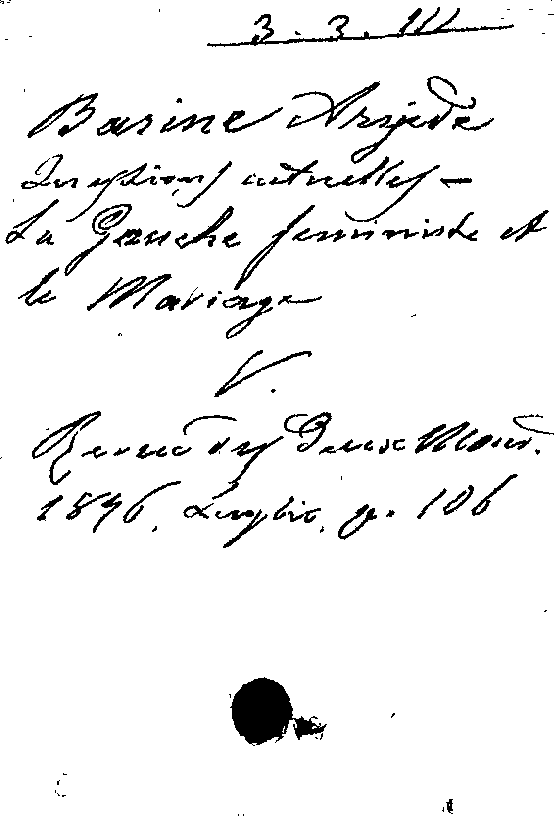 3. 3. III
Barine Arvède
Questions actuelles –
La Gauche feministe et
le Mariage
V.
Revue des Deux Mond.
1896, Luglio, p. 106